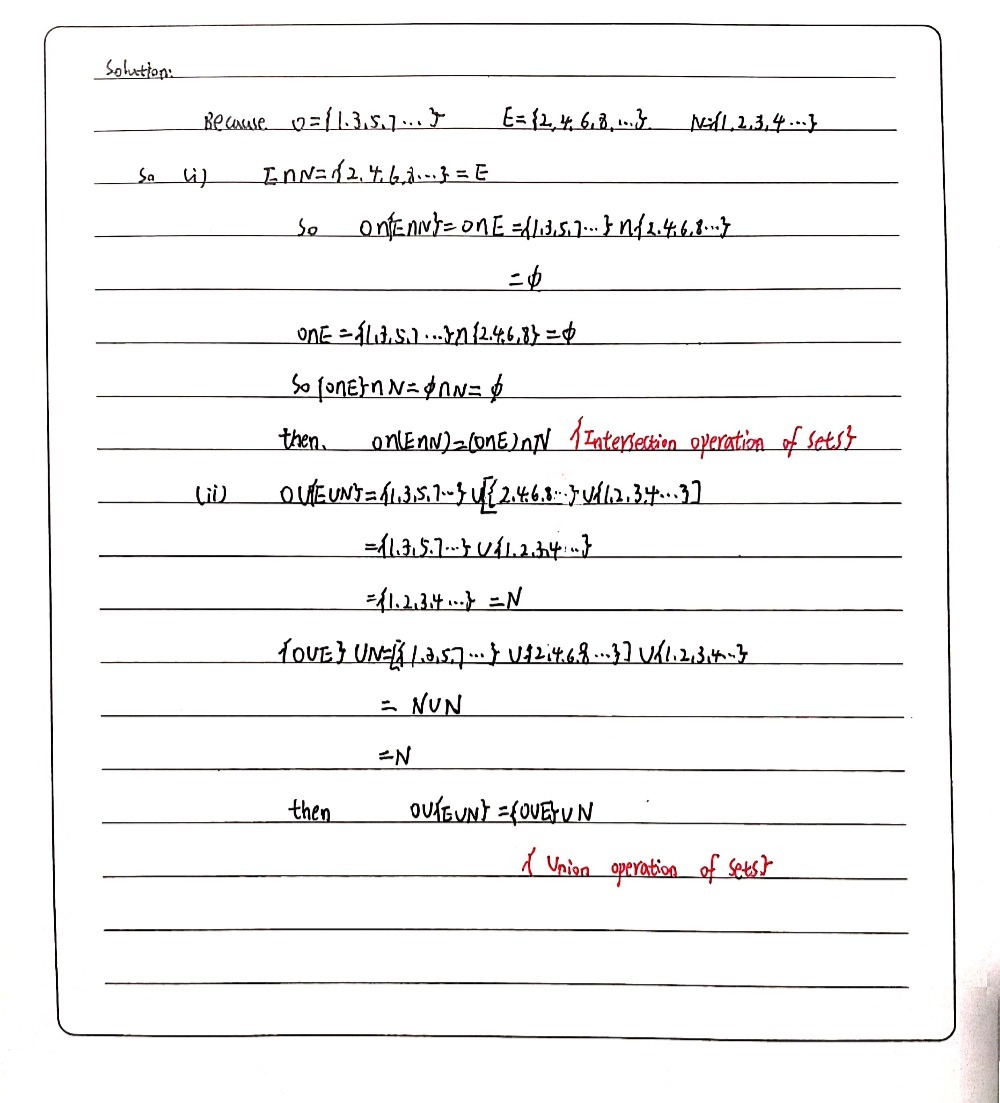 Solution:
Because O={1.3.5.7...} E={2,4,6,8,...}. N={1,2,3,4...}
So (i) E∩N={2.4.6.8...}=E
So O∩{E∩N}=O∩E={1.3.5.7...}∩{2.4.6.8...}
=ϕ
O∩E={1.3.5.7...}∩{2.4.6.8}=ϕ
So {O∩E}∩N=ϕ∩N=ϕ
then. O∩(E∩N)=(O∩E)∩N {Intersection operation of sets}
(ii) O∪{E∪N}={1.3.5.7...}∪[{2.4.6.8...}∪{1.2.3.4...}]
={1.3.5.7...}∪{1.2.3.4...}
={1.2.3.4...}=N
{O∪E}∪N=[{1.3.5.7...}∪{2.4.6.8...}]∪{1.2.3.4...}
=N∪N
=N
then O∪{E∪N}={O∪E}∪N
{Union operation of sets}